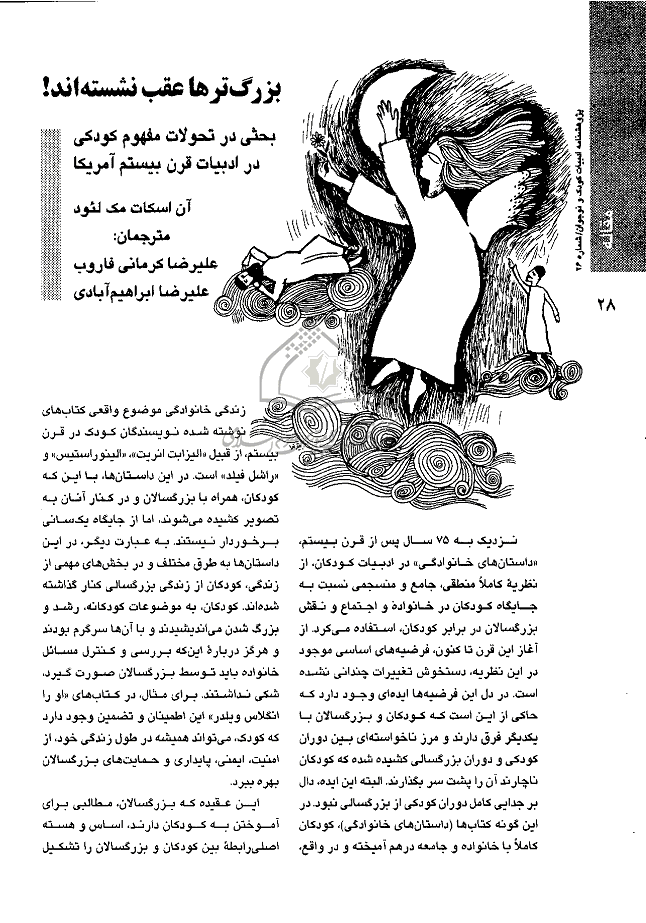 بزرگ‌ترها عقب نشسته‌اند!
بحثی در تحولات مفهوم کودکی
در ادبیات قرن بیستم آمریکا
آن اسکات مک لئود
مترجمان:
علیرضا کرمانی قاروب
علیرضا ابراهیم‌آبادی
پژوهشنامه ادبیات کودک و نوجوان/شماره ۲۶
۲۸
نزدیک به ۷۵ سال پس از قرن بیستم،
«داستان‌های خانوادگی» در ادبیات کودکان، از
نظریهٔ کاملاً منطقی، جامع و منسجمی نسبت به
جایگاه کودکان در خانواده و اجتماع و نقش
بزرگسالان در برابر کودکان، استفاده می‌کرد. از
آغاز این قرن تا کنون، فرضیه‌های اساسی موجود
در این نظریه، دستخوش تغییرات چندانی نشده
است. در دل این فرضیه‌ها ایده‌ای وجود دارد که
حاکی از این است که کودکان و بزرگسالان با
یکدیگر فرق دارند و مرز ناخواسته‌ای بین دوران
کودکی و دوران بزرگسالی کشیده شده که کودکان
ناچارند آن را پشت سر بگذارند. البته این ایده، دال
بر جدایی کامل دوران کودکی از بزرگسالی نبود. در
این گونه کتاب‌ها (داستان‌های خانوادگی)، کودکان
کاملاً با خانواده و جامعه درهم آمیخته و در واقع،
زندگی خانوادگی موضوع واقعی کتاب‌های
نوشته شده نویسندگان کودک در قرن
بیستم، از قبیل «الیزابت انریت»، «الینور استیس» و
«راشل فیلد» است. در این داستان‌ها، با این که
کودکان، همراه با بزرگسالان و در کنار آنان به
تصویر کشیده می‌شوند، اما از جایگاه یکسانی
برخوردار نیستند. به عبارت دیگر، در این
داستان‌ها به طرق مختلف و در بخش‌های مهمی از
زندگی، کودکان از زندگی بزرگسالی کنار گذاشته
شده‌اند. کودکان، به موضوعات کودکانه، رشد و
بزرگ شدن می‌اندیشیدند و با آن‌ها سرگرم بودند
و هرگز دربارهٔ این‌که بررسی و کنترل مسائل
خانواده باید توسط بزرگسالان صورت گیرد،
شکی نداشتند. برای مثال، در کتاب‌های «او را
انگلاس ویلدر» این اطمینان و تضمین وجود دارد
که کودک، می‌تواند همیشه در طول زندگی خود، از
امنیت، ایمنی، پایداری و حمایت‌های بزرگسالان
بهره ببرد.
این عقیده که بزرگسالان، مطالبی برای
آموختن به کودکان دارند، اساس و هسته
اصلی رابطهٔ بین کودکان و بزرگسالان را تشکیل